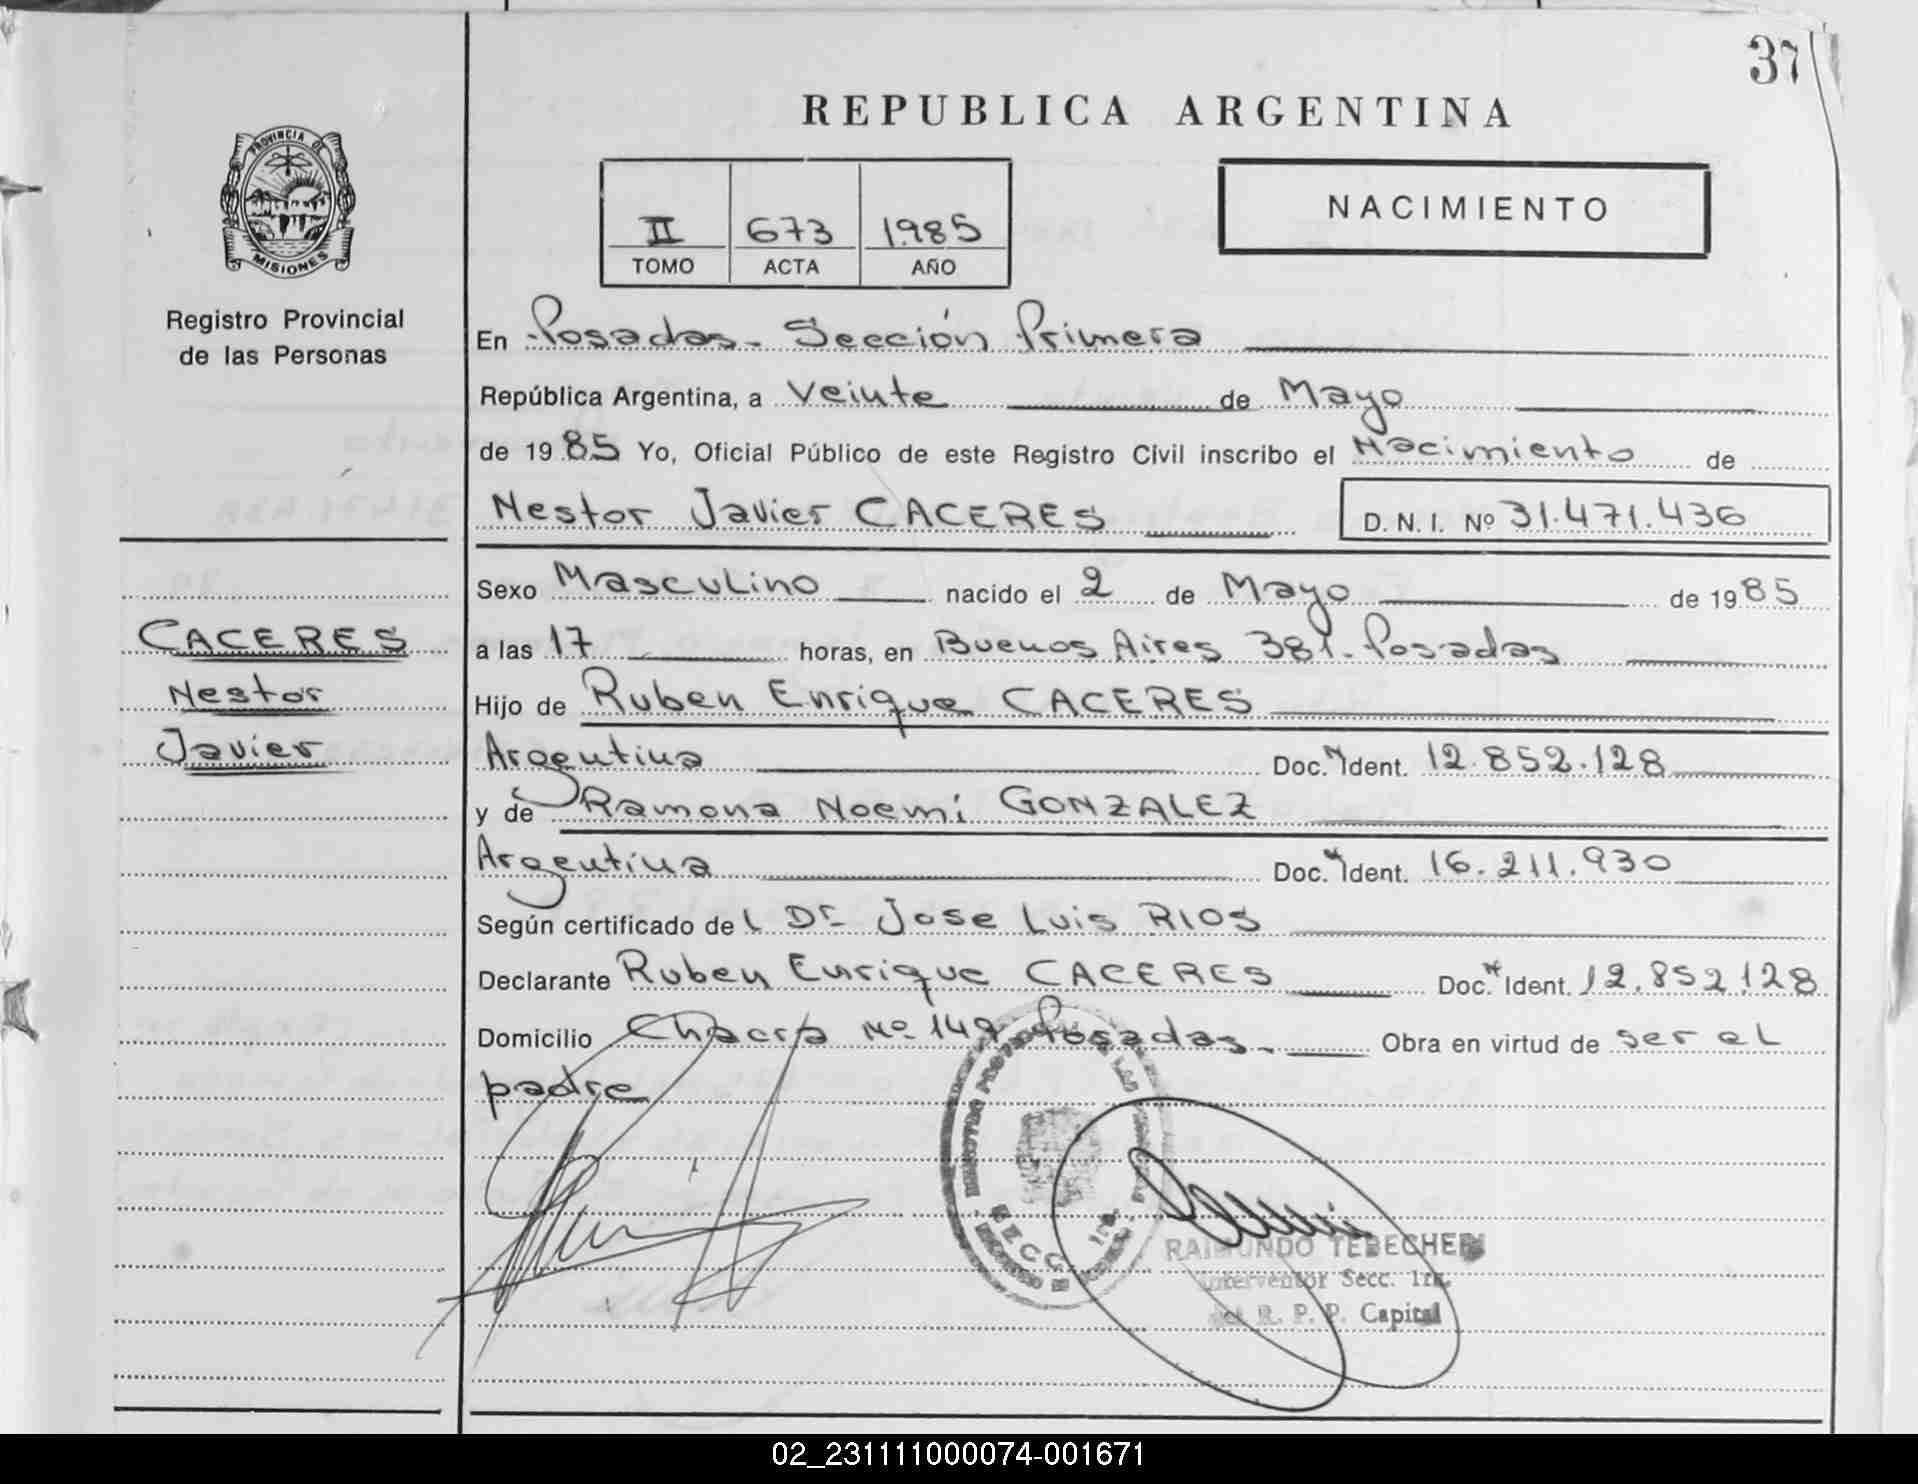 37
REPUBLICA ARGENTINA
PROVINCIA DE
MISIONES
Registro Provincial
de las Personas
II 673 1985
TOMO ACTA AÑO
NACIMIENTO
En Posadas - Sección Primera
República Argentina, a Veinte de Mayo
de 1985 Yo, Oficial Público de este Registro Civil inscribo el Nacimiento de
Nestor Javier CACERES D. N. I. Nº 31.471.436
Sexo Masculino nacido el 2 de Mayo de 1985
CACERES
Nestor
Javier
a las 17 horas, en Buenos Aires 381 - Posadas
Hijo de Ruben Enrique CACERES
Argentina Doc. Ident. 12.852.128
y de Ramona Noemi GONZALEZ
Argentina Doc. Ident. 16.211.930
Según certificado del Dr. Jose Luis RIOS
Declarante Ruben Enrique CACERES Doc. Ident. 12.852.128
Domicilio Chacra Nº 149 Posadas - Obra en virtud de ser el
padre
RAIMUNDO TEBECHERI
Interventor Secc. 1ra.
del R. P. P. Capital
02_231111000074-001671